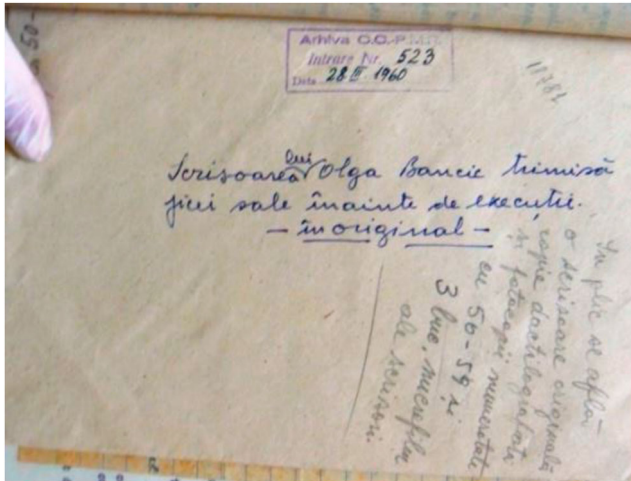 Arhiva C.C.-P.M.R.
Intrare Nr. 523
Data 28 III 1960
11782
Scrisoarea lui Olga Bancic trimisă
ficei sale înainte de execuție.
- în original -
In plic se află
o scrisoare originală
copie dactilografiată
și fotocopii numerotate
cu 50-59 și
3 buc. microfilm
ale scrisorii.
50-